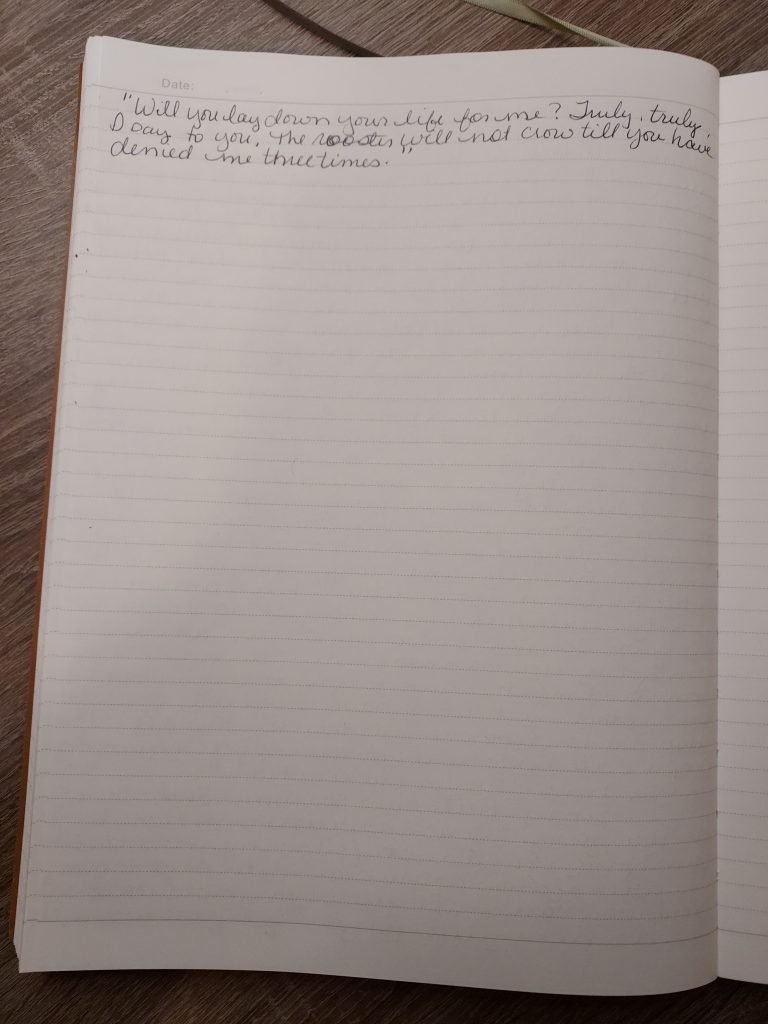 Date:
"Will you lay down your life for me? Truly, truly,
I say to you, the rooster will not crow till you have
denied me three times."